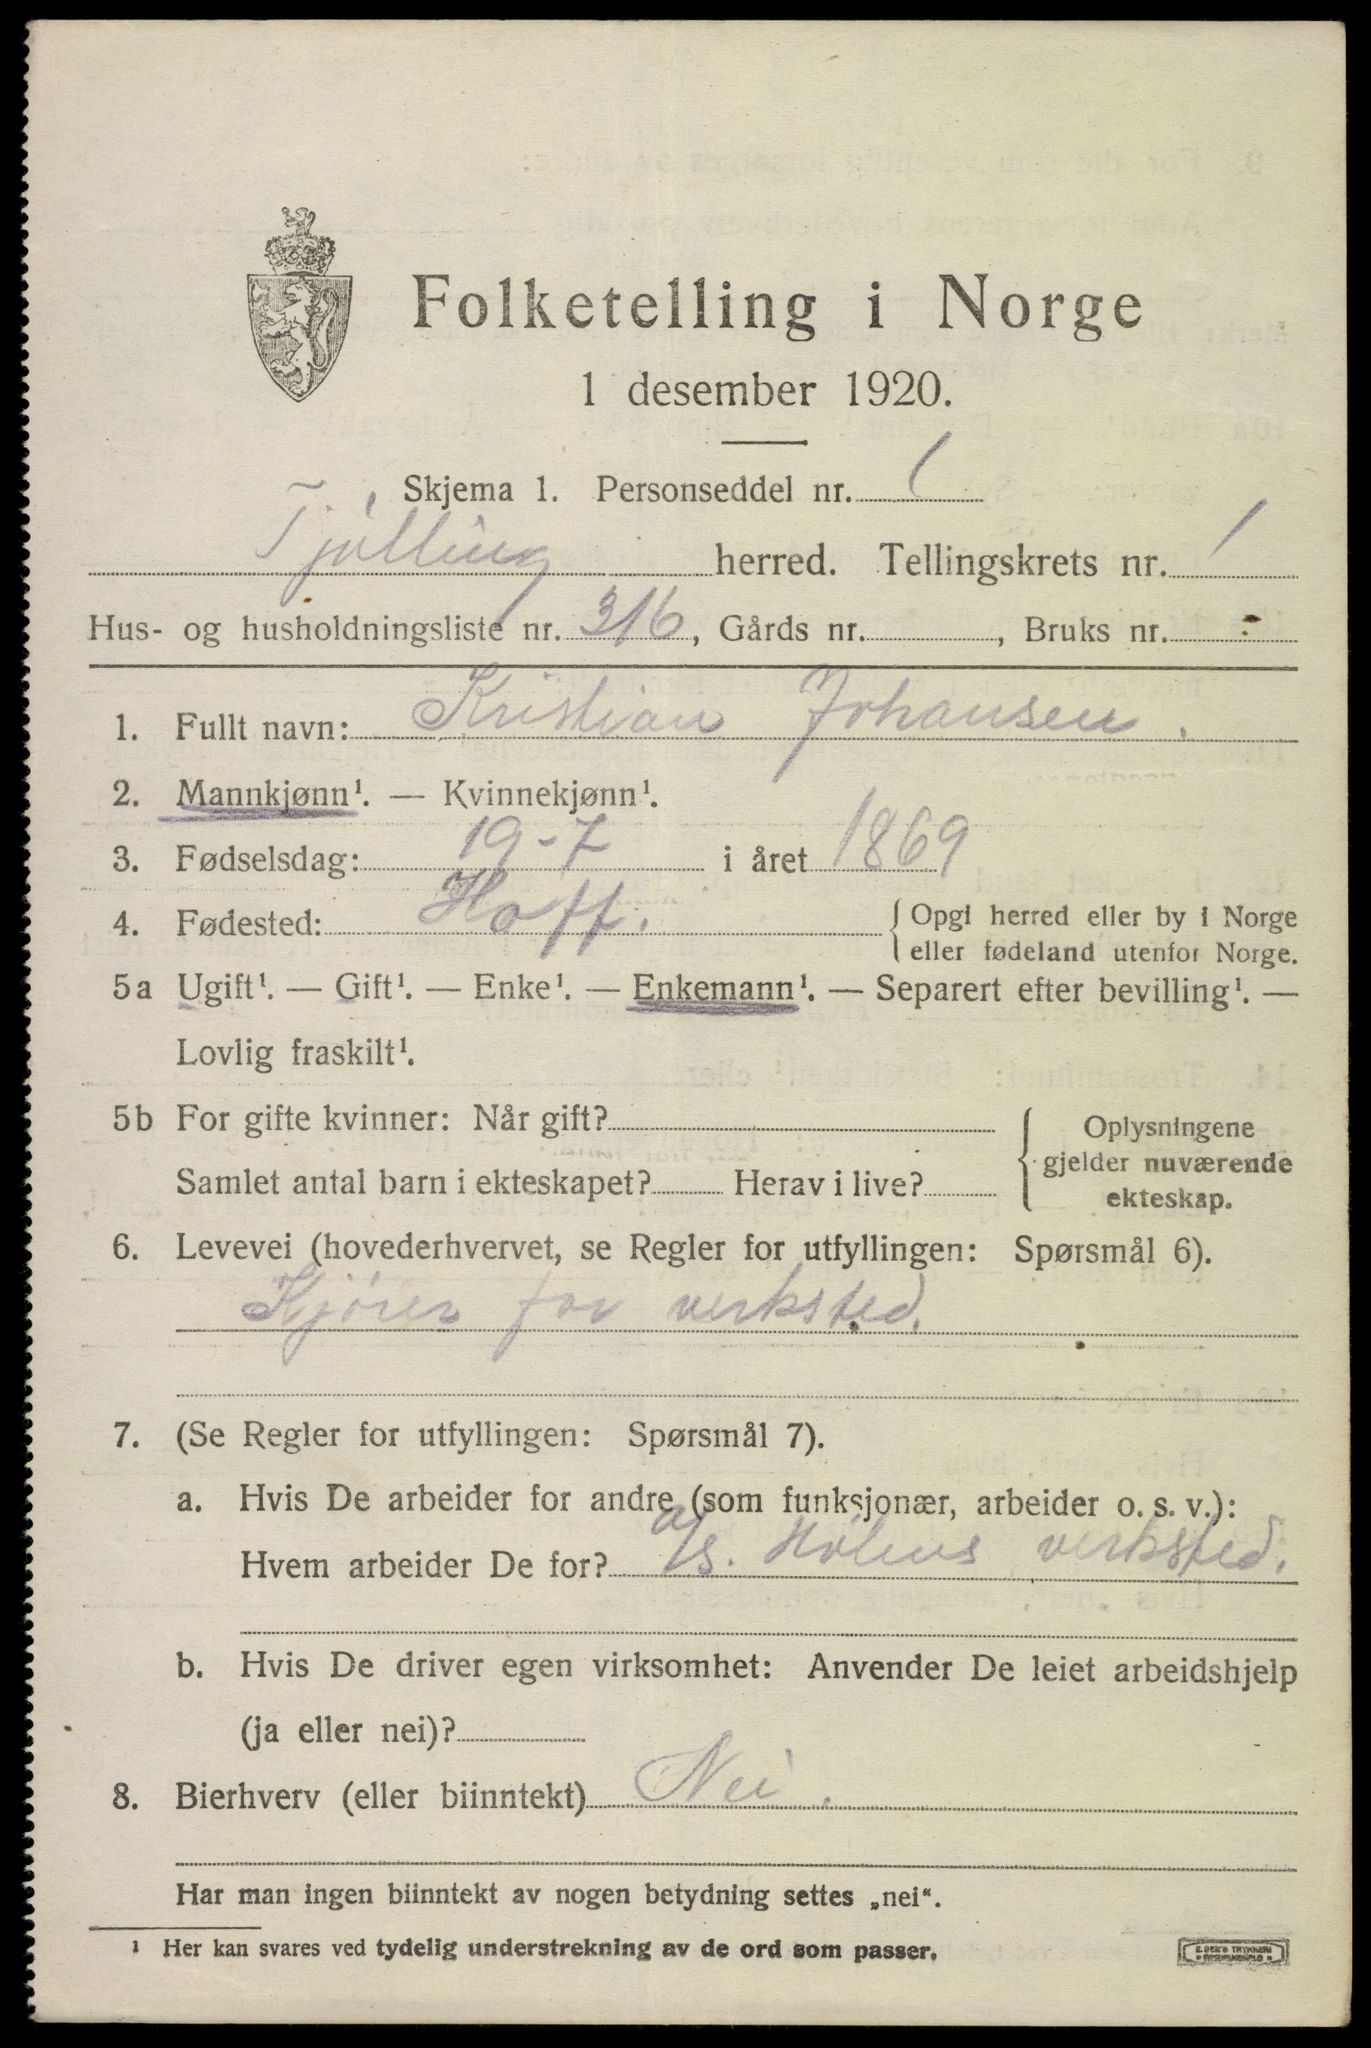 Folketelling i Norge
1 desember 1920.
Skjema 1. Personseddel nr. 1
Tjølling herred. Tellingskrets nr. 1
Hus- og husholdningsliste nr. 316, Gårds nr. , Bruks nr.
1. Fullt navn: Kristian Johansen.
2. Mannkjønn¹. — Kvinnekjønn¹.
3. Fødselsdag: 19-7 i året 1869
4. Fødested: Hoff. { Opgi herred eller by i Norge
eller fødeland utenfor Norge.
5a Ugift¹. — Gift¹. — Enke¹. — Enkemann¹. — Separert efter bevilling¹. —
Lovlig fraskilt¹.
5b For gifte kvinner: Når gift?
Samlet antal barn i ekteskapet? Herav i live?
{ Oplysningene
gjelder nuværende
ekteskap.
6. Levevei (hovederhvervet, se Regler for utfyllingen: Spørsmål 6).
Kjører for verksted.
7. (Se Regler for utfyllingen: Spørsmål 7).
a. Hvis De arbeider for andre (som funksjonær, arbeider o. s. v.):
Hvem arbeider De for? A/S. Hølens verksted.
b. Hvis De driver egen virksomhet: Anvender De leiet arbeidshjelp
(ja eller nei)?
8. Bierhverv (eller biinntekt) Nei.
Har man ingen biinntekt av nogen betydning settes „nei“.
¹ Her kan svares ved tydelig understrekning av de ord som passer.